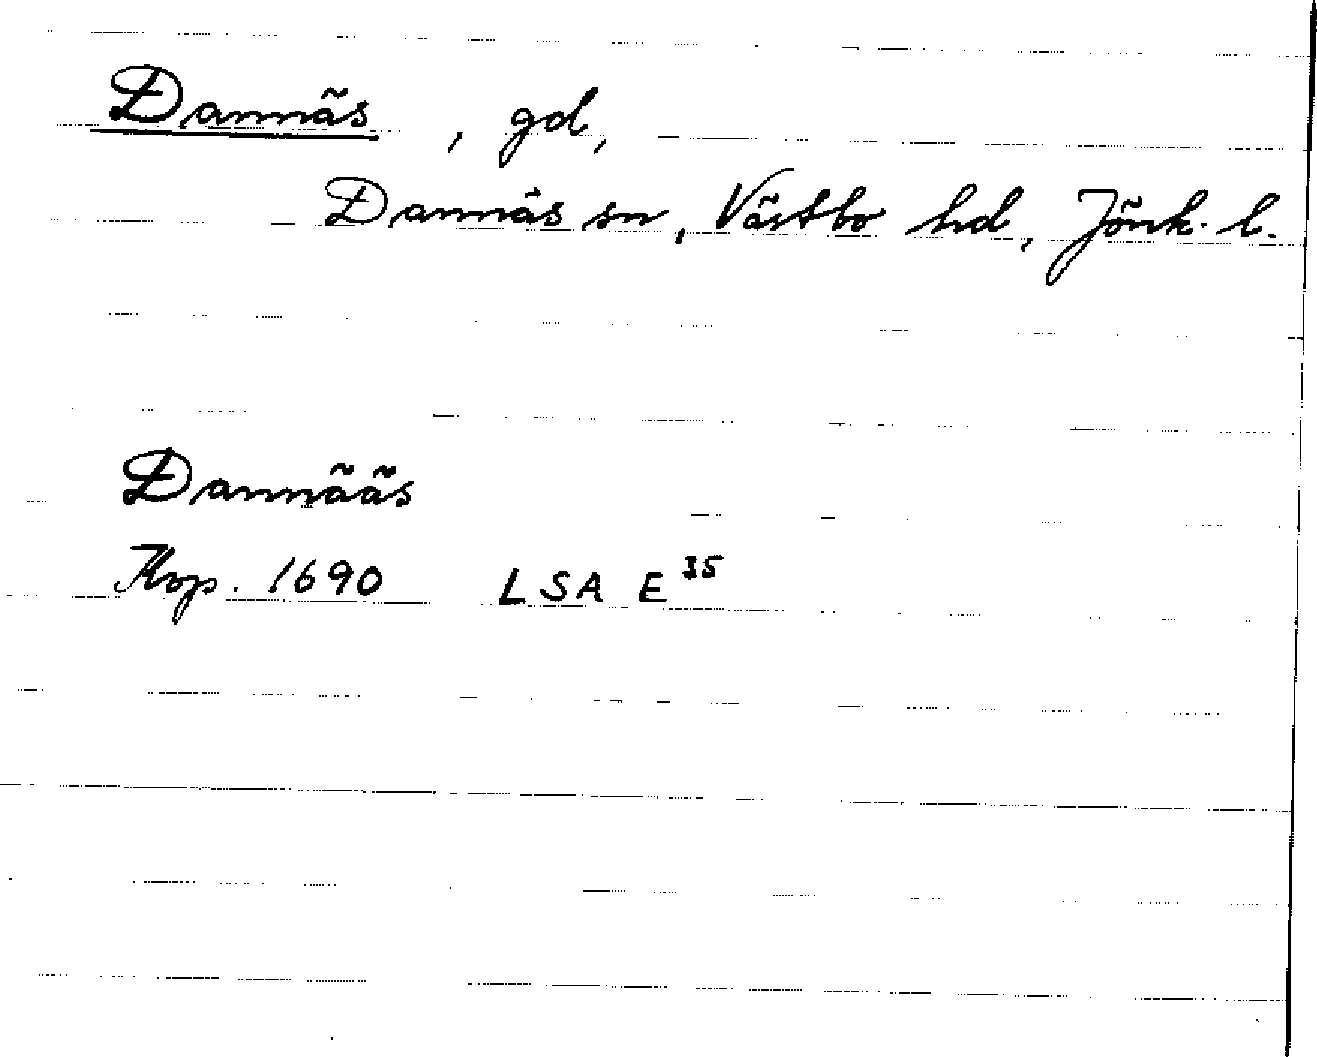 Dannäs, gd,
Dannäs sn, Västbo hd, Jönk. l.
Dannääs
Kop. 1690 LSA E 35